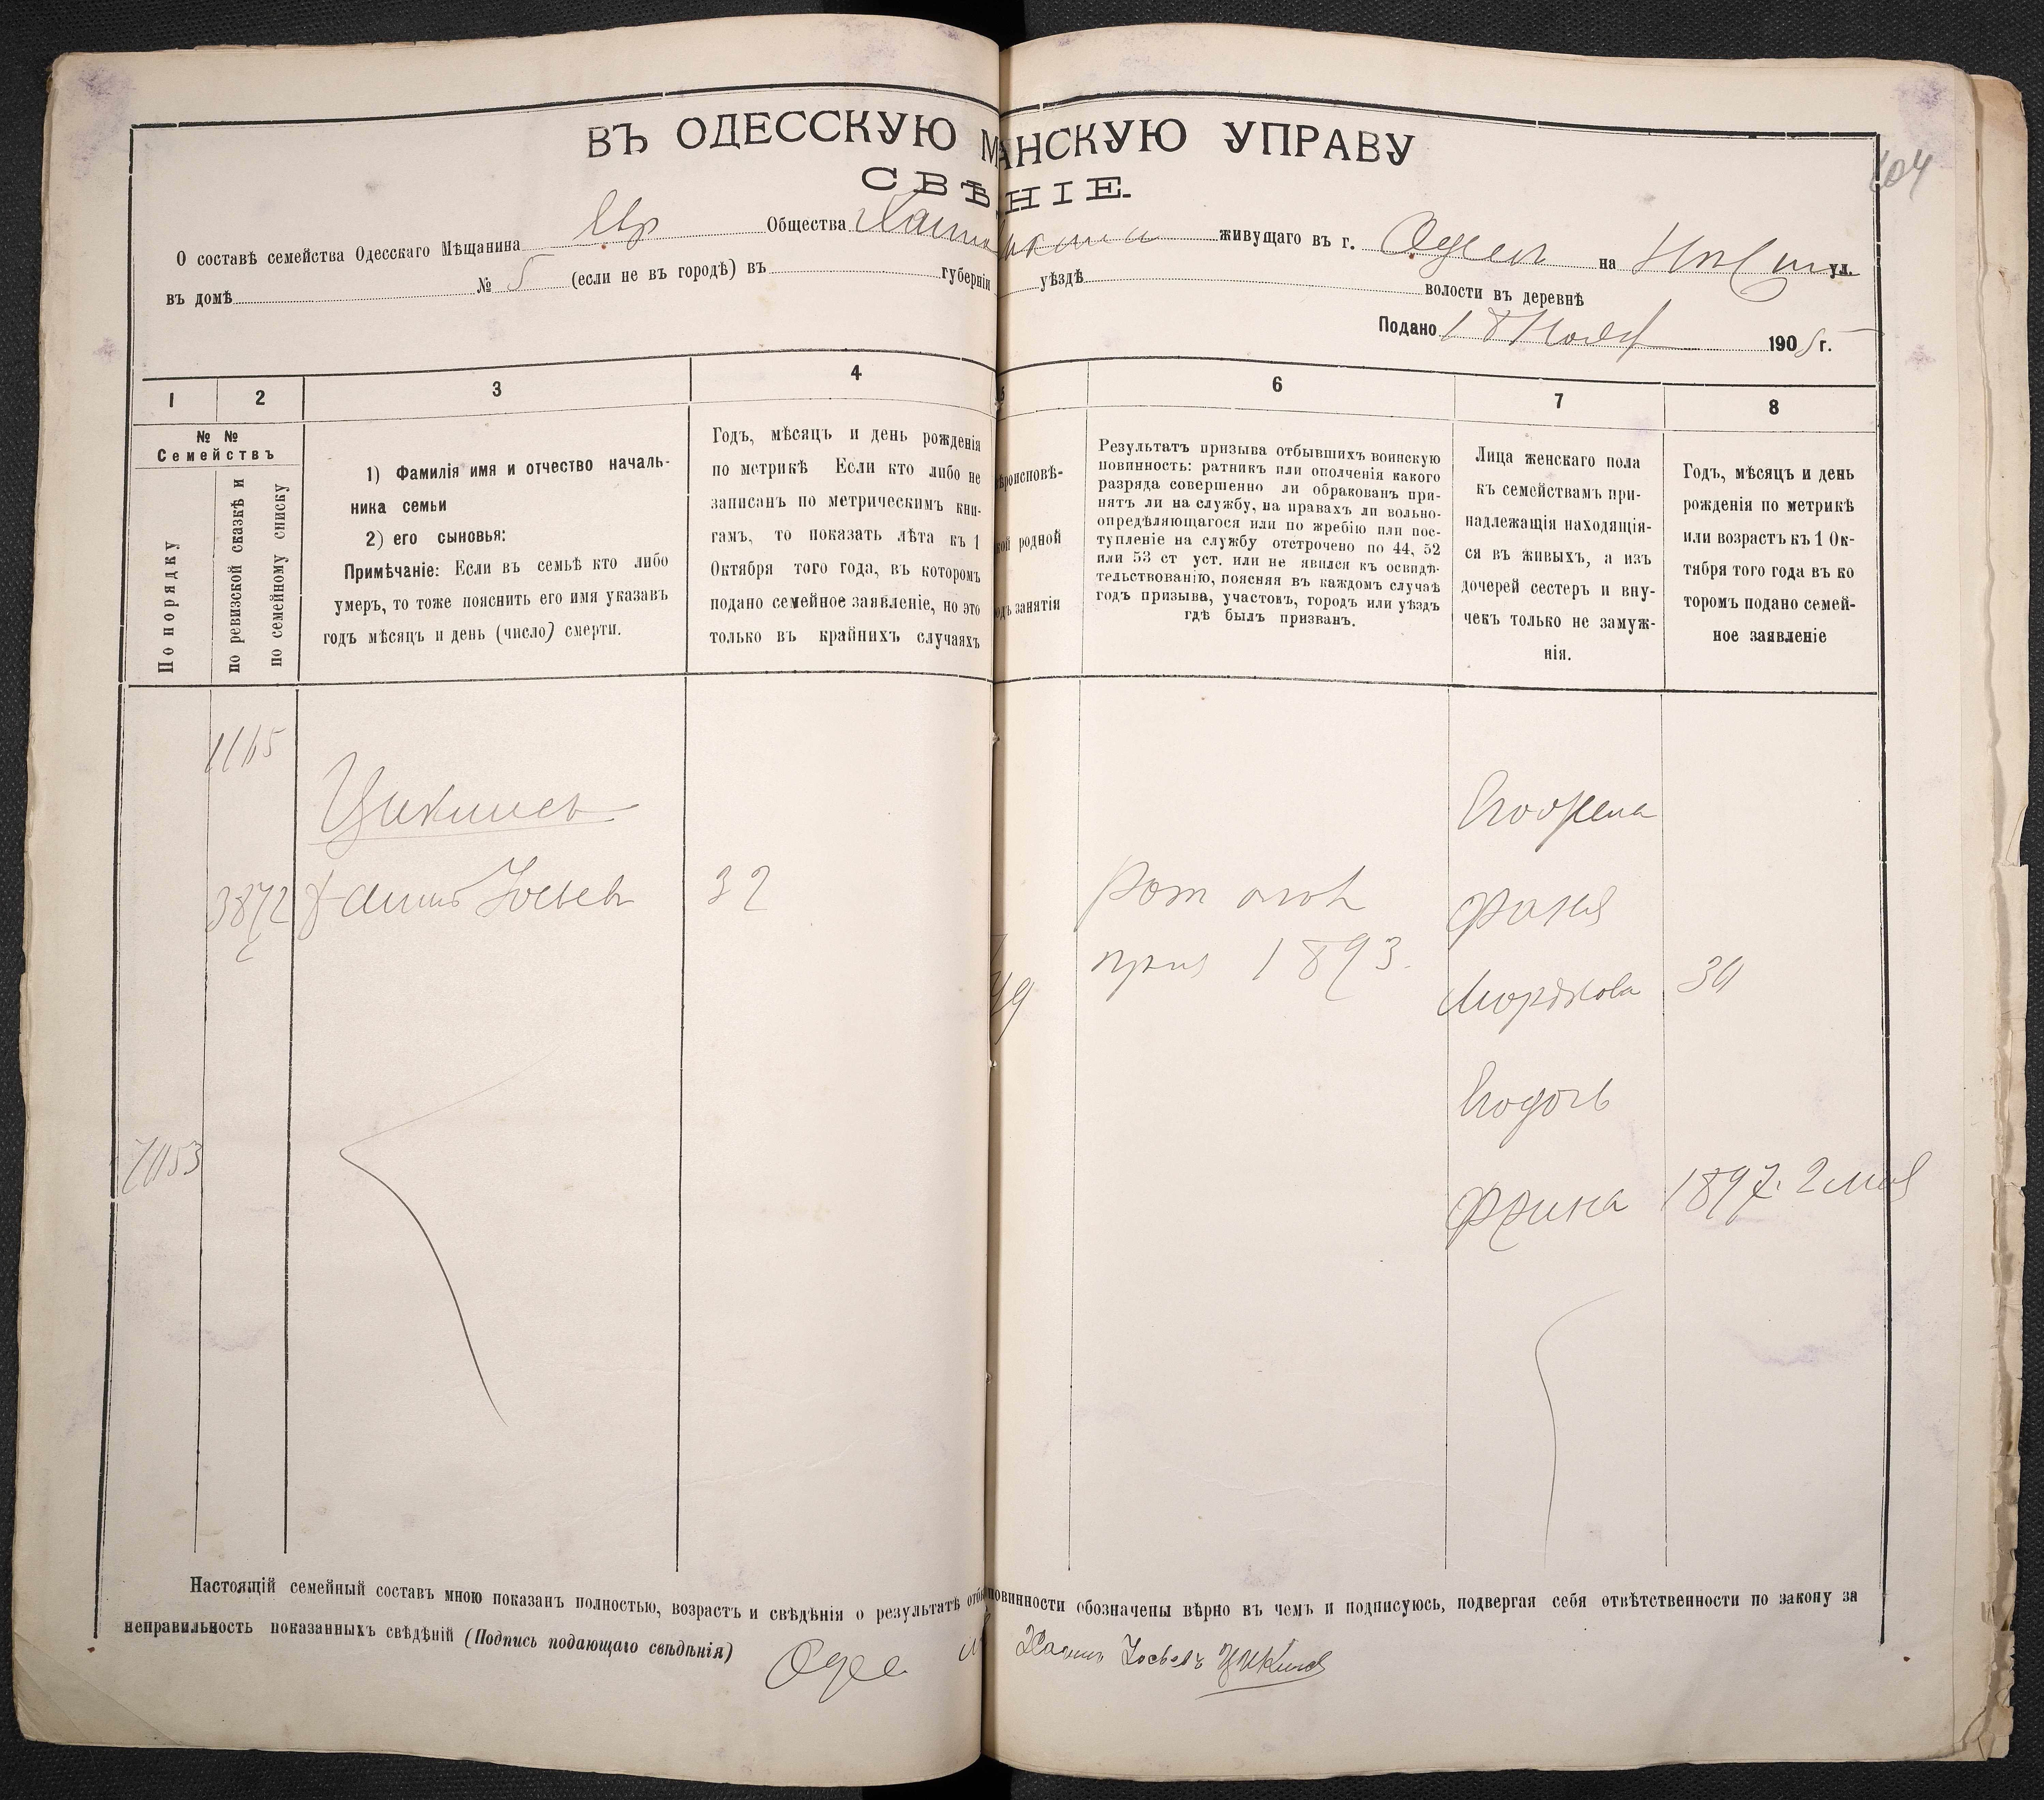 ВЪ ОДЕССКУЮ М АНСКУЮ УПРАВУ
СВѢ НІЕ.
О составѣ семейства Одесскаго Мѣщанина Евр Общества живущаго въ г. Одессѣ на ул.
въ домѣ № 5 (если не въ городѣ) въ губерніи уѣздѣ волости въ деревнѣ
Подано 18 Нояб 1905 г.
604
1 2 3 4 5 6 7 8
№ №
Семействъ
По порядку
по ревизской сказкѣ и
по семейному списку
1) Фамилія имя и отчество началь-
ника семьи
2) его сыновья:
Примѣчаніе: Если въ семьѣ кто либо
умеръ, то тоже пояснить его имя указавъ
годъ мѣсяцъ и день (число) смерти.
Годъ, мѣсяцъ и день рожденія
по метрикѣ Если кто либо не
записанъ по метрическимъ кни-
гамъ, то показать лѣта къ 1
Октября того года, въ которомъ
подано семейное заявленіе, но это
только въ крайнихъ случаяхъ
ѣроисповѣ-
кой родной
одъ занятія
Результатъ призыва отбывшихъ воинскую
повинность: ратникъ или ополченія какого
разряда совершенно ли обракованъ при-
нятъ ли на службу, на правахъ ли вольно-
опредѣляющагося или по жребію или пос-
тупленіе на службу отстрочено по 44, 52
или 53 ст уст. или не явился къ освидѣ-
тельствованію, поясняя въ каждомъ случаѣ
годъ призыва, участокъ, городъ или уѣздъ
гдѣ былъ призванъ.
Лица женскаго пола
къ семействамъ при-
надлежащія находящія-
ся въ живыхъ, а изъ
дочерей сестеръ и вну-
чекъ только не замуж-
нія.
Годъ, мѣсяцъ и день
рожденія по метрикѣ
или возрастъ къ 1 Ок-
тября того года въ ко
торомъ подано семей-
ное заявленіе
1165
Цикинов
Его жена
3872 Хаим Иосьев 32
Рат опол
Фаня
приз 1893.
Мордкова 30
49
Его дочь
7153
Фрина 1897. 2 мая
Настоящій семейный составъ мною показанъ полностью, возрастъ и свѣдѣнія о результатѣ отбы повинности обозначены вѣрно въ чемъ и подписуюсь, подвергая себя отвѣтственности по закону за
неправильность показанныхъ свѣдѣній (Подпись подающаго свѣдѣнія) Одес Хаимъ Иосьевъ Цикинов